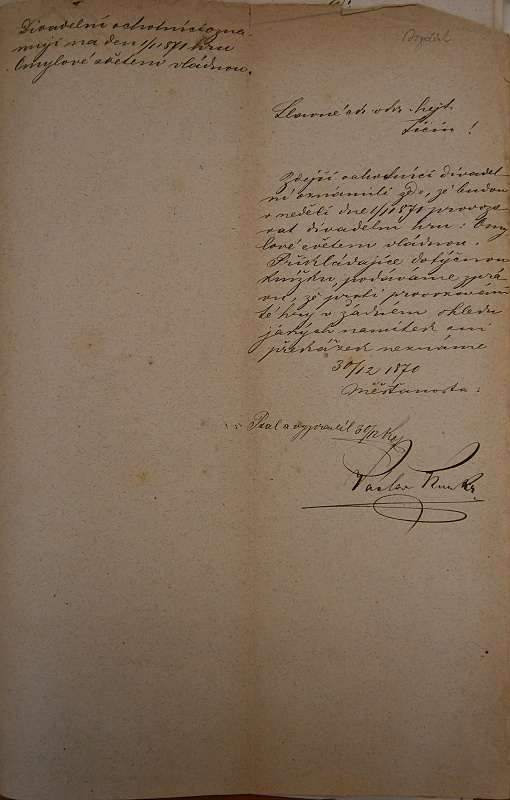 Divadelní ochotníci ozna-
mují na den 1/1 1871 hru
Omylové světem vládnou.
Slavné ck okr. hejt.
Jičín!
Zdejší ochotníci divadel
ní oznámili zde, že budou
v neděli dne 1/1 1871 provozo
vat divadelní hru: Omy
lové světem vládnou.
Přikládajíce dotyčnou
knížku, podáváme zprá
vu, že proti provozování
té hry v žádném ohledu
jakých námitek ani
překážek neznáme
30/12 1870
Měšťanosta:
Psal a vypravil 30/12
Václav